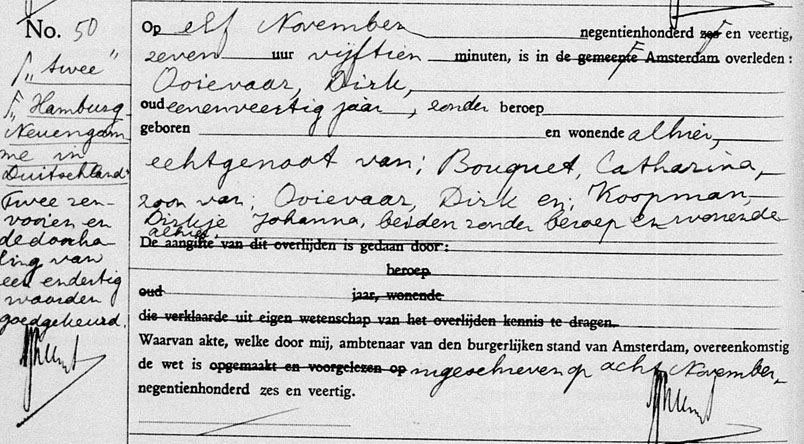 No. 50
„twee"
„Hamburg-
Neuengam
me in
Duitschland"
Twee ren-
vooien en
de doorha-
ling van
een endertig
woorden
goedgekeurd.
Op elf November negentienhonderd zes en veertig,
zeven uur vijftien minuten, is in de gemeente Amsterdam overleden:
Ooievaar, Dirk,
oud eenenveertig jaar, zonder beroep
geboren en wonende alhier,
echtgenoot van; Bouquet, Catharina,
zoon van; Ooievaar, Dirk en; Koopman,
Dirkje Johanna, beiden zonder beroep en wonende
alhier.
De aangifte van dit overlijden is gedaan door:
beroep
oud jaar, wonende
die verklaarde uit eigen wetenschap van het overlijden kennis te dragen.
Waarvan akte, welke door mij, ambtenaar van den burgerlijken stand van Amsterdam, overeenkomstig
de wet is opgemaakt en voorgelezen op ingeschreven op acht November,
negentienhonderd zes en veertig.